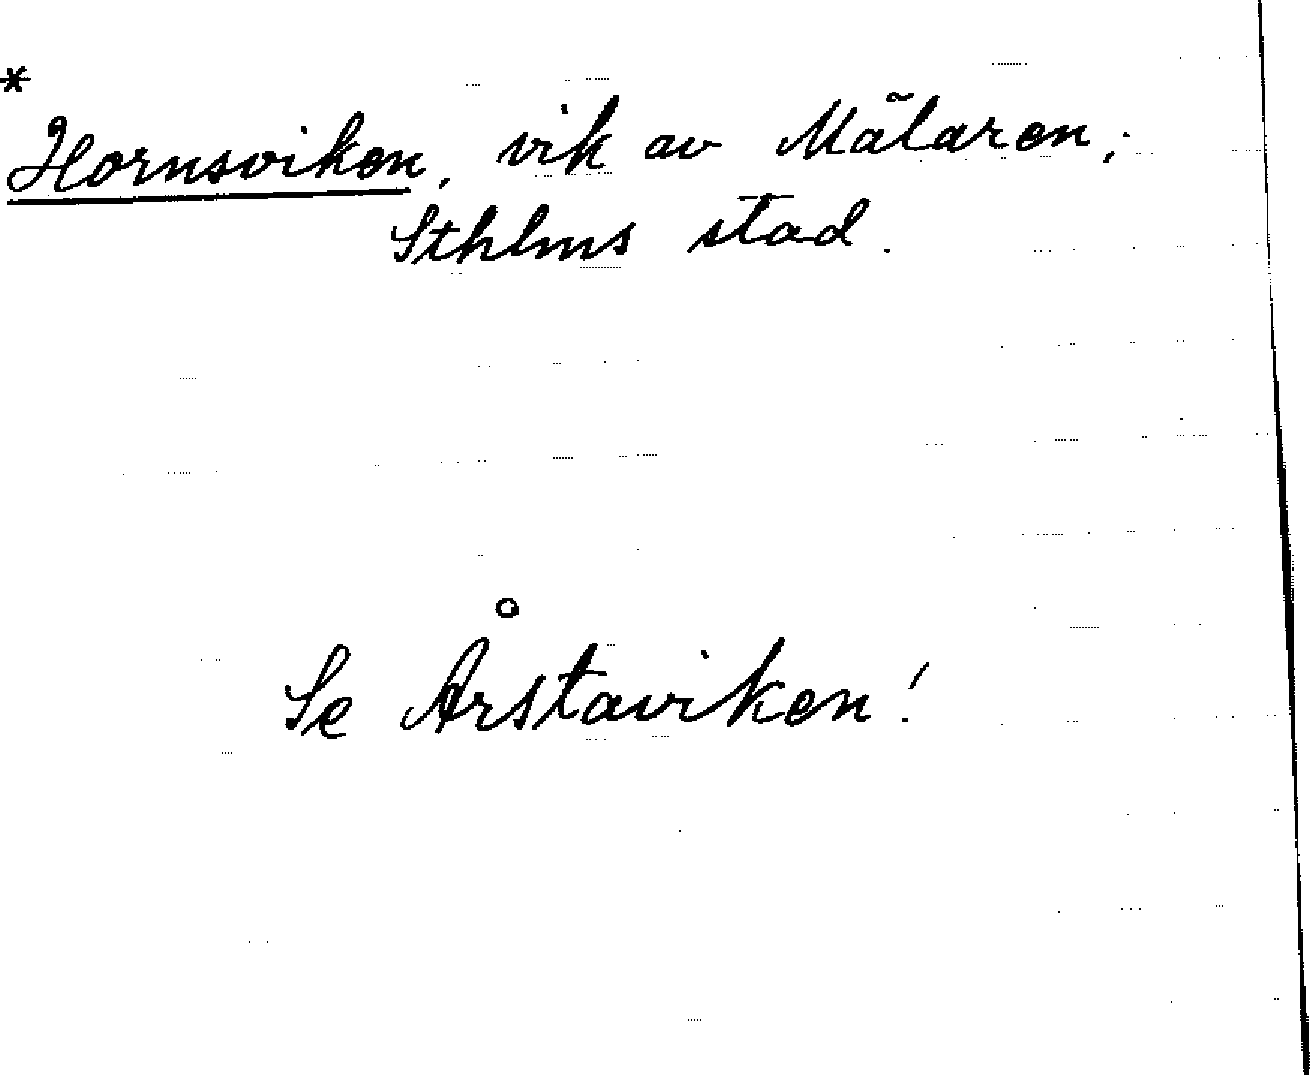 *
Hornsviken, vik av Mälaren;
Sthlms stad.
Se Årstaviken!